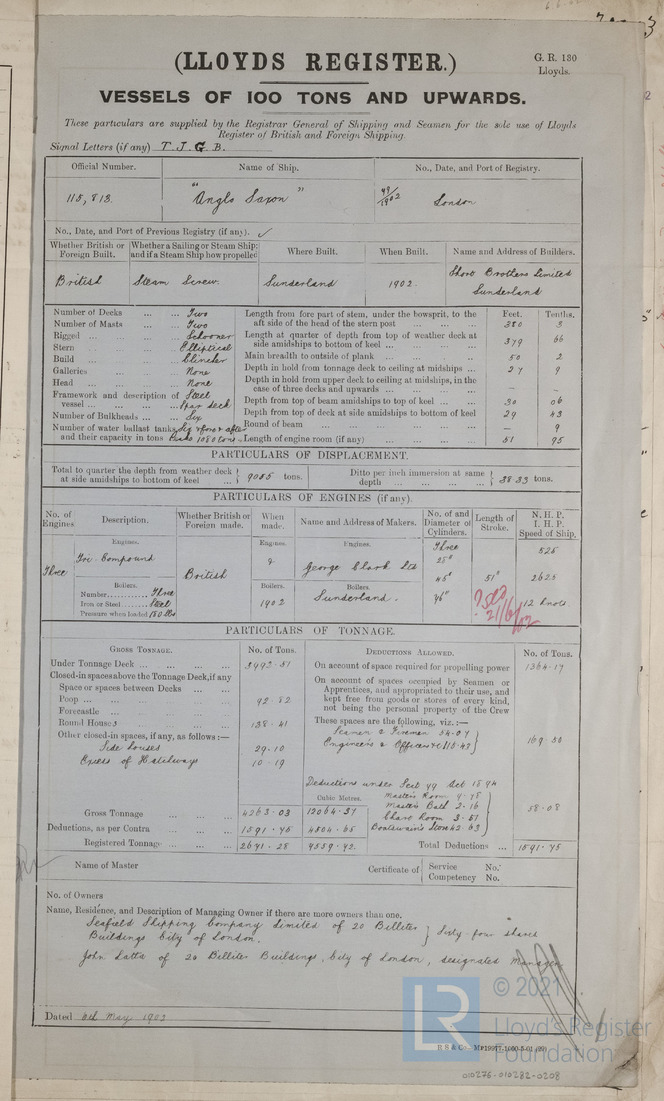 (LLOYDS REGISTER.)
G. R. 130
Lloyds.
VESSELS OF 100 TONS AND UPWARDS.
These particulars are supplied by the Registrar General of Shipping and Seamen for the sole use of Lloyds
Register of British and Foreign Shipping.
Signal Letters (if any) T. J. G. B.
Official Number. Name of Ship. No., Date, and Port of Registry.
115,813. "Anglo Saxon" 49/1902 London
No., Date, and Port of Previous Registry (if any).
Whether British or Foreign Built. Whether a Sailing or Steam Ship; and if a Steam Ship how propelled Where Built. When Built. Name and Address of Builders.
British Steam Screw. Sunderland 1902. Short Brothers Limited
Sunderland
Number of Decks ... ... Two
Number of Masts ... ... Two
Rigged ... ... ... Schooner
Stern ... ... ... Elliptical
Build ... ... ... Clincher
Galleries ... ... None
Head ... ... ... None
Framework and description of Steel
vessel ... ... ... Spar deck
Number of Bulkheads ... ... Six
Number of water ballast tanks, Six & fore & after
and their capacity in tons Peaks 1080 tons
Feet. Tenths.
Length from fore part of stem, under the bowsprit, to the
aft side of the head of the stern post ... ... ... 380 5
Length at quarter of depth from top of weather deck at
side amidships to bottom of keel ... ... ... 379 66
Main breadth to outside of plank ... ... ... 50 2
Depth in hold from tonnage deck to ceiling at midships ... 27 9
Depth in hold from upper deck to ceiling at midships, in the
case of three decks and upwards ... ... ... – –
Depth from top of beam amidships to top of keel ... ... 30 06
Depth from top of deck at side amidships to bottom of keel 29 43
Round of beam ... ... ... – 9
Length of engine room (if any) ... ... ... 51 95
PARTICULARS OF DISPLACEMENT.
Total to quarter the depth from weather deck
at side amidships to bottom of keel ... 9055 tons.
Ditto per inch immersion at same
depth ... ... ... ... 38.33 tons.
PARTICULARS OF ENGINES (if any).
No. of Engines. Description. Whether British or Foreign made. When made. Name and Address of Makers. No. of and Diameter of Cylinders. Length of Stroke. N. H. P. I. H. P. Speed of Ship.
Engines. Engines. Engines.
Three Tri Compound British George Clark Ltd Three 25" 525
Boilers. Boilers. Boilers. 51" 2625
Number Three
Iron or Steel Steel 1902 Sunderland. 12 knots
Pressure when loaded 180 lbs
21/6/02
PARTICULARS OF TONNAGE.
GROSS TONNAGE. No. of Tons. DEDUCTIONS ALLOWED. No. of Tons.
Under Tonnage Deck ... ... ... 3992.51
Closed-in spaces above the Tonnage Deck, if any
Space or spaces between Decks ...
Poop ... ... ... ... 92.82
Forecastle ... ... ...
Round Houses 138.41
Other closed-in spaces, if any, as follows:—
Side Houses 29.10
Excess of Hatchways 10.19
On account of space required for propelling power 1364.17
On account of spaces occupied by Seamen or
Apprentices, and appropriated to their use, and
kept free from goods or stores of every kind,
not being the personal property of the Crew
These spaces are the following, viz.:—
Seamen & Firemen 54.07
Engineers & Officers &c 115.43 169.50
Deductions under Sect 79 Act 1894
Master's Room 9.78
Master's Bath 2.16
Chart Room 3.51 58.08
Boatswain's Store 42.63
Cubic Metres.
Gross Tonnage 4263.03 12064.37
Deductions, as per Contra ... ... 1591.75 4504.65
Registered Tonnage ... ... 2671.28 7559.72
Total Deductions ... 1591.75
Name of Master Certificate of Service No.
Competency No.
No. of Owners
Name, Residence, and Description of Managing Owner if there are more owners than one.
Seafield Shipping Company Limited of 20 Billiter
Buildings City of London. Sixty four shares
John Latta of 20 Billiter Buildings, City of London, designated Manager
Dated May 1902
B S & Co
© 2021
LR Lloyd's Register
Foundation
010275-010282-0208